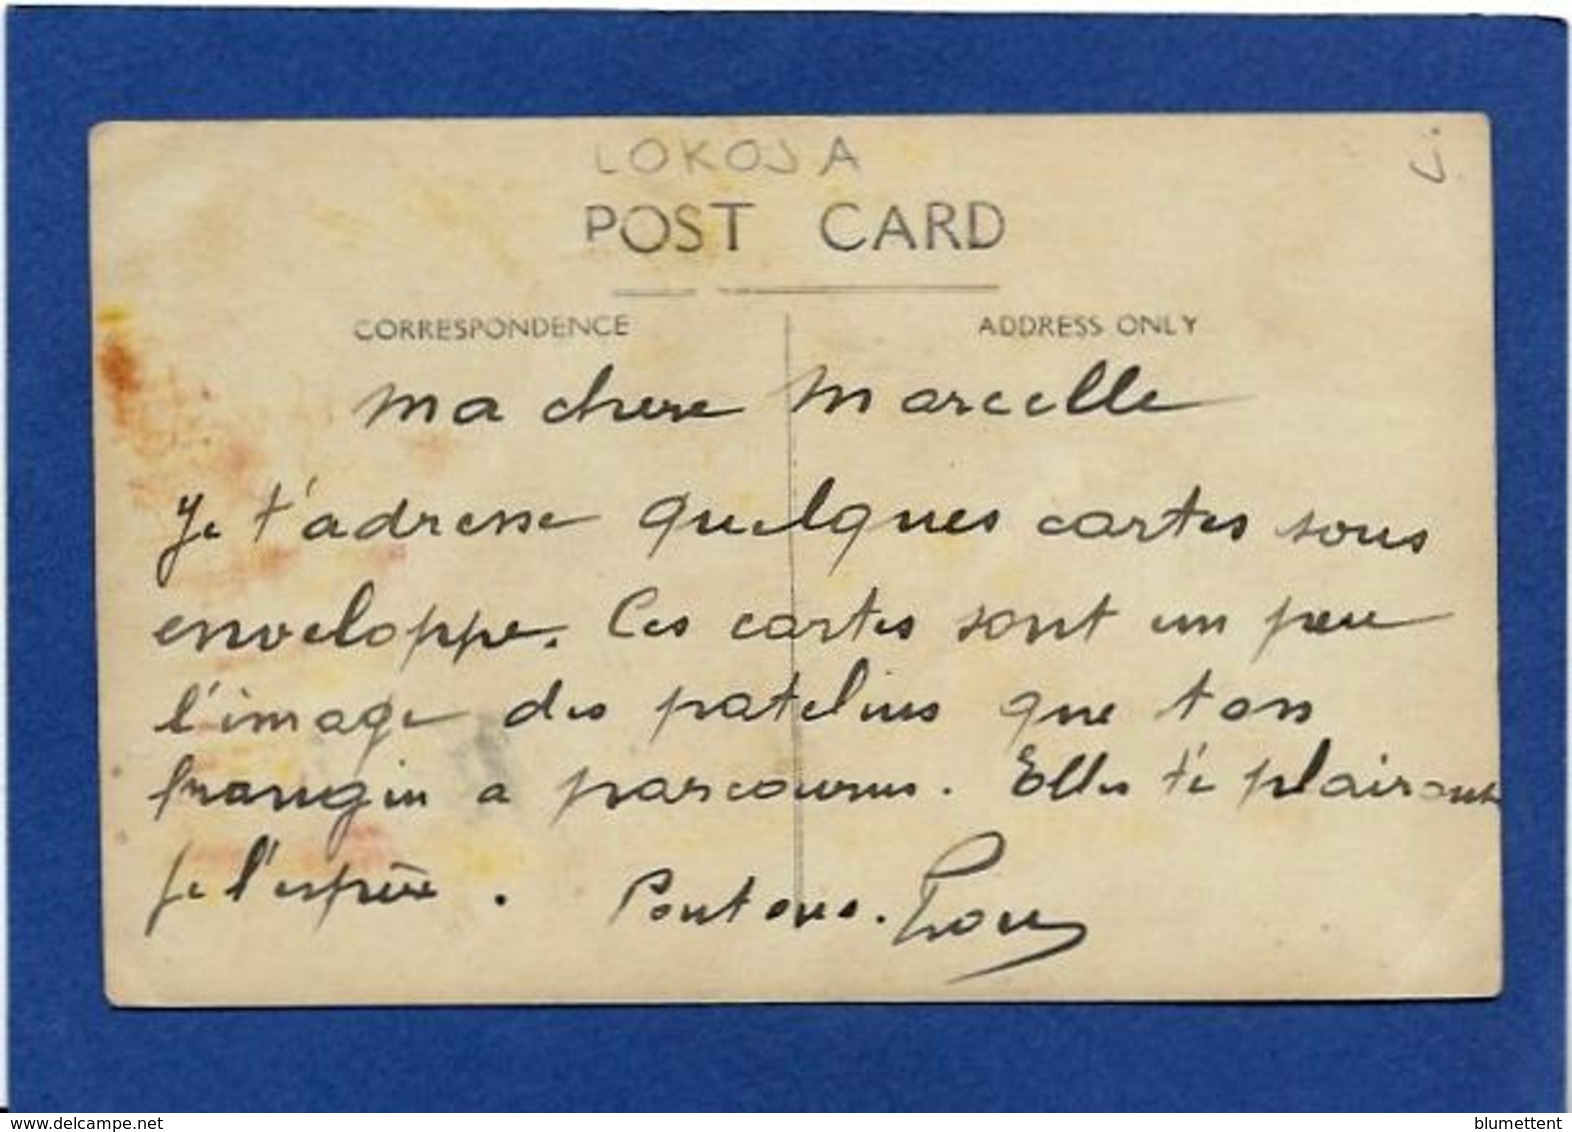 LOKOJA
J.
POST CARD
CORRESPONDENCE
ADDRESS ONLY
Ma chere Marcelle
Je t'adresse quelques cartes sous
enveloppe. Ces cartes sont un peu
l'image des patelins que ton
frangin a parcourus. Elles te plairont
je l'espère.
delcampe.net
blumettent